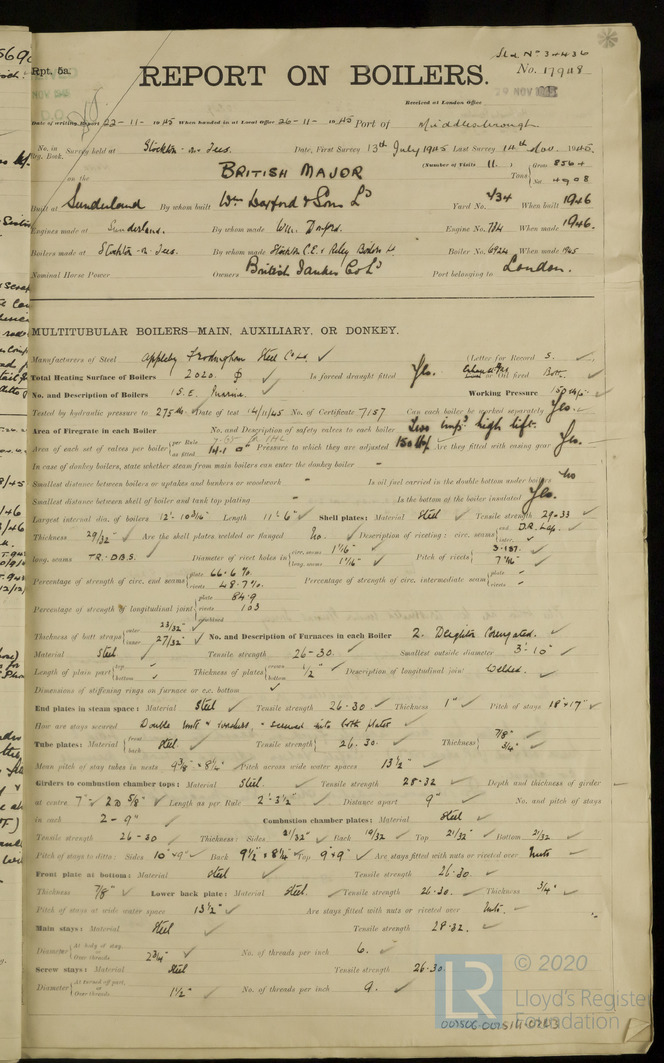 Sld No 34436
Rpt. 5a.
No. 17948
REPORT ON BOILERS.
Received at London Office
29 NOV 1945
Date of writing Report 22-11-1945 When handed in at Local Office 26-11-1945 Port of Middlesbrough
No. in Reg. Book. Survey held at Stockton-on-Tees. Date, First Survey 13th July 1945 Last Survey 14th Nov. 1945.
(Number of Visits 11.) Gross 8564
on the BRITISH MAJOR Tons Net 4908
Built at Sunderland By whom built Wm Doxford & Sons Ld Yard No. 734 When built 1946
Engines made at Sunderland. By whom made Wm. Doxford. Engine No. 734 When made 1946.
Boilers made at Stockton-on-Tees. By whom made Stockton C.E. & Riley Boilers Ld Boiler No. 6924 When made 1945
Nominal Horse Power Owners British Tanker Co Ld Port belonging to London.
MULTITUBULAR BOILERS—MAIN, AUXILIARY, OR DONKEY.
Manufacturers of Steel Appleby Frodingham Steel Co Ltd (Letter for Record S.)
Total Heating Surface of Boilers 2020. Is forced draught fitted Yes. or Oil fired Both.
No. and Description of Boilers 1 S.E. Marine. Working Pressure 150
Tested by hydraulic pressure to 275 lbs Date of test 14/11/45 No. of Certificate 7157 Can each boiler be worked separately Yes.
Area of Firegrate in each Boiler No. and Description of safety valves to each boiler Two imp? high lift.
Area of each set of valves per boiler per Rule as fitted 14.1 Pressure to which they are adjusted 150 Are they fitted with easing gear Yes.
In case of donkey boilers, state whether steam from main boilers can enter the donkey boiler -
Smallest distance between boilers or uptakes and bunkers or woodwork - Is oil fuel carried in the double bottom under boilers No
Smallest distance between shell of boiler and tank top plating - Is the bottom of the boiler insulated Yes.
Largest internal dia. of boilers 12'-10 3/16" Length 11'-6" Shell plates: Material Steel Tensile strength 29-33
Thickness 29/32" Are the shell plates welded or flanged No. Description of riveting: circ. seams end D.R. Lap. inter.
long. seams T.R. D.B.S. Diameter of rivet holes in circ. seams 1 1/16" long. seams 1 1/16" Pitch of rivets 3.187. 7 7/16"
Percentage of strength of circ. end seams plate 66.6% rivets 48.7%. Percentage of strength of circ. intermediate seam plate rivets
Percentage of strength of longitudinal joint plate 84.9 rivets 103 combined
Thickness of butt straps outer 23/32" inner 27/32" No. and Description of Furnaces in each Boiler 2. Deighton Corrugated.
Material Steel Tensile strength 26-30. Smallest outside diameter 3'-10"
Length of plain part top bottom Thickness of plates crown bottom 1/2" Description of longitudinal joint Welded.
Dimensions of stiffening rings on furnace or c.c. bottom
End plates in steam space: Material Steel Tensile strength 26-30 Thickness 1" Pitch of stays 18"x17"
How are stays secured Double nuts & washers - screwed into both plates
Tube plates: Material front back Steel Tensile strength 26-30. Thickness 7/8" 3/4"
Mean pitch of stay tubes in nests 9 3/8" x 8 1/2" Pitch across wide water spaces 13 1/2"
Girders to combustion chamber tops: Material Steel. Tensile strength 28-32 Depth and thickness of girder
at centre 7" 2 @ 5/8" Length as per Rule 2'-3 1/2" Distance apart 9" No. and pitch of stays
in each 2-9" Combustion chamber plates: Material Steel
Tensile strength 26-30 Thickness: Sides 21/32" Back 19/32" Top 21/32" Bottom 21/32
Pitch of stays to ditto: Sides 10"x9" Back 9 1/2" x 8 1/4" Top 9"x9" Are stays fitted with nuts or riveted over Nuts
Front plate at bottom: Material Steel Tensile strength 26-30.
Thickness 7/8" Lower back plate: Material Steel Tensile strength 26-30. Thickness 3/4"
Pitch of stays at wide water space 13 1/2" Are stays fitted with nuts or riveted over Nuts.
Main stays: Material Steel Tensile strength 28-32.
Diameter At body of stay, or Over threads 2 3/4" No. of threads per inch 6.
Screw stays: Material Steel Tensile strength 26-30.
Diameter At turned off part, or Over threads 1 1/2" No. of threads per inch 9.
© 2020
LR
Lloyd's Register
Foundation